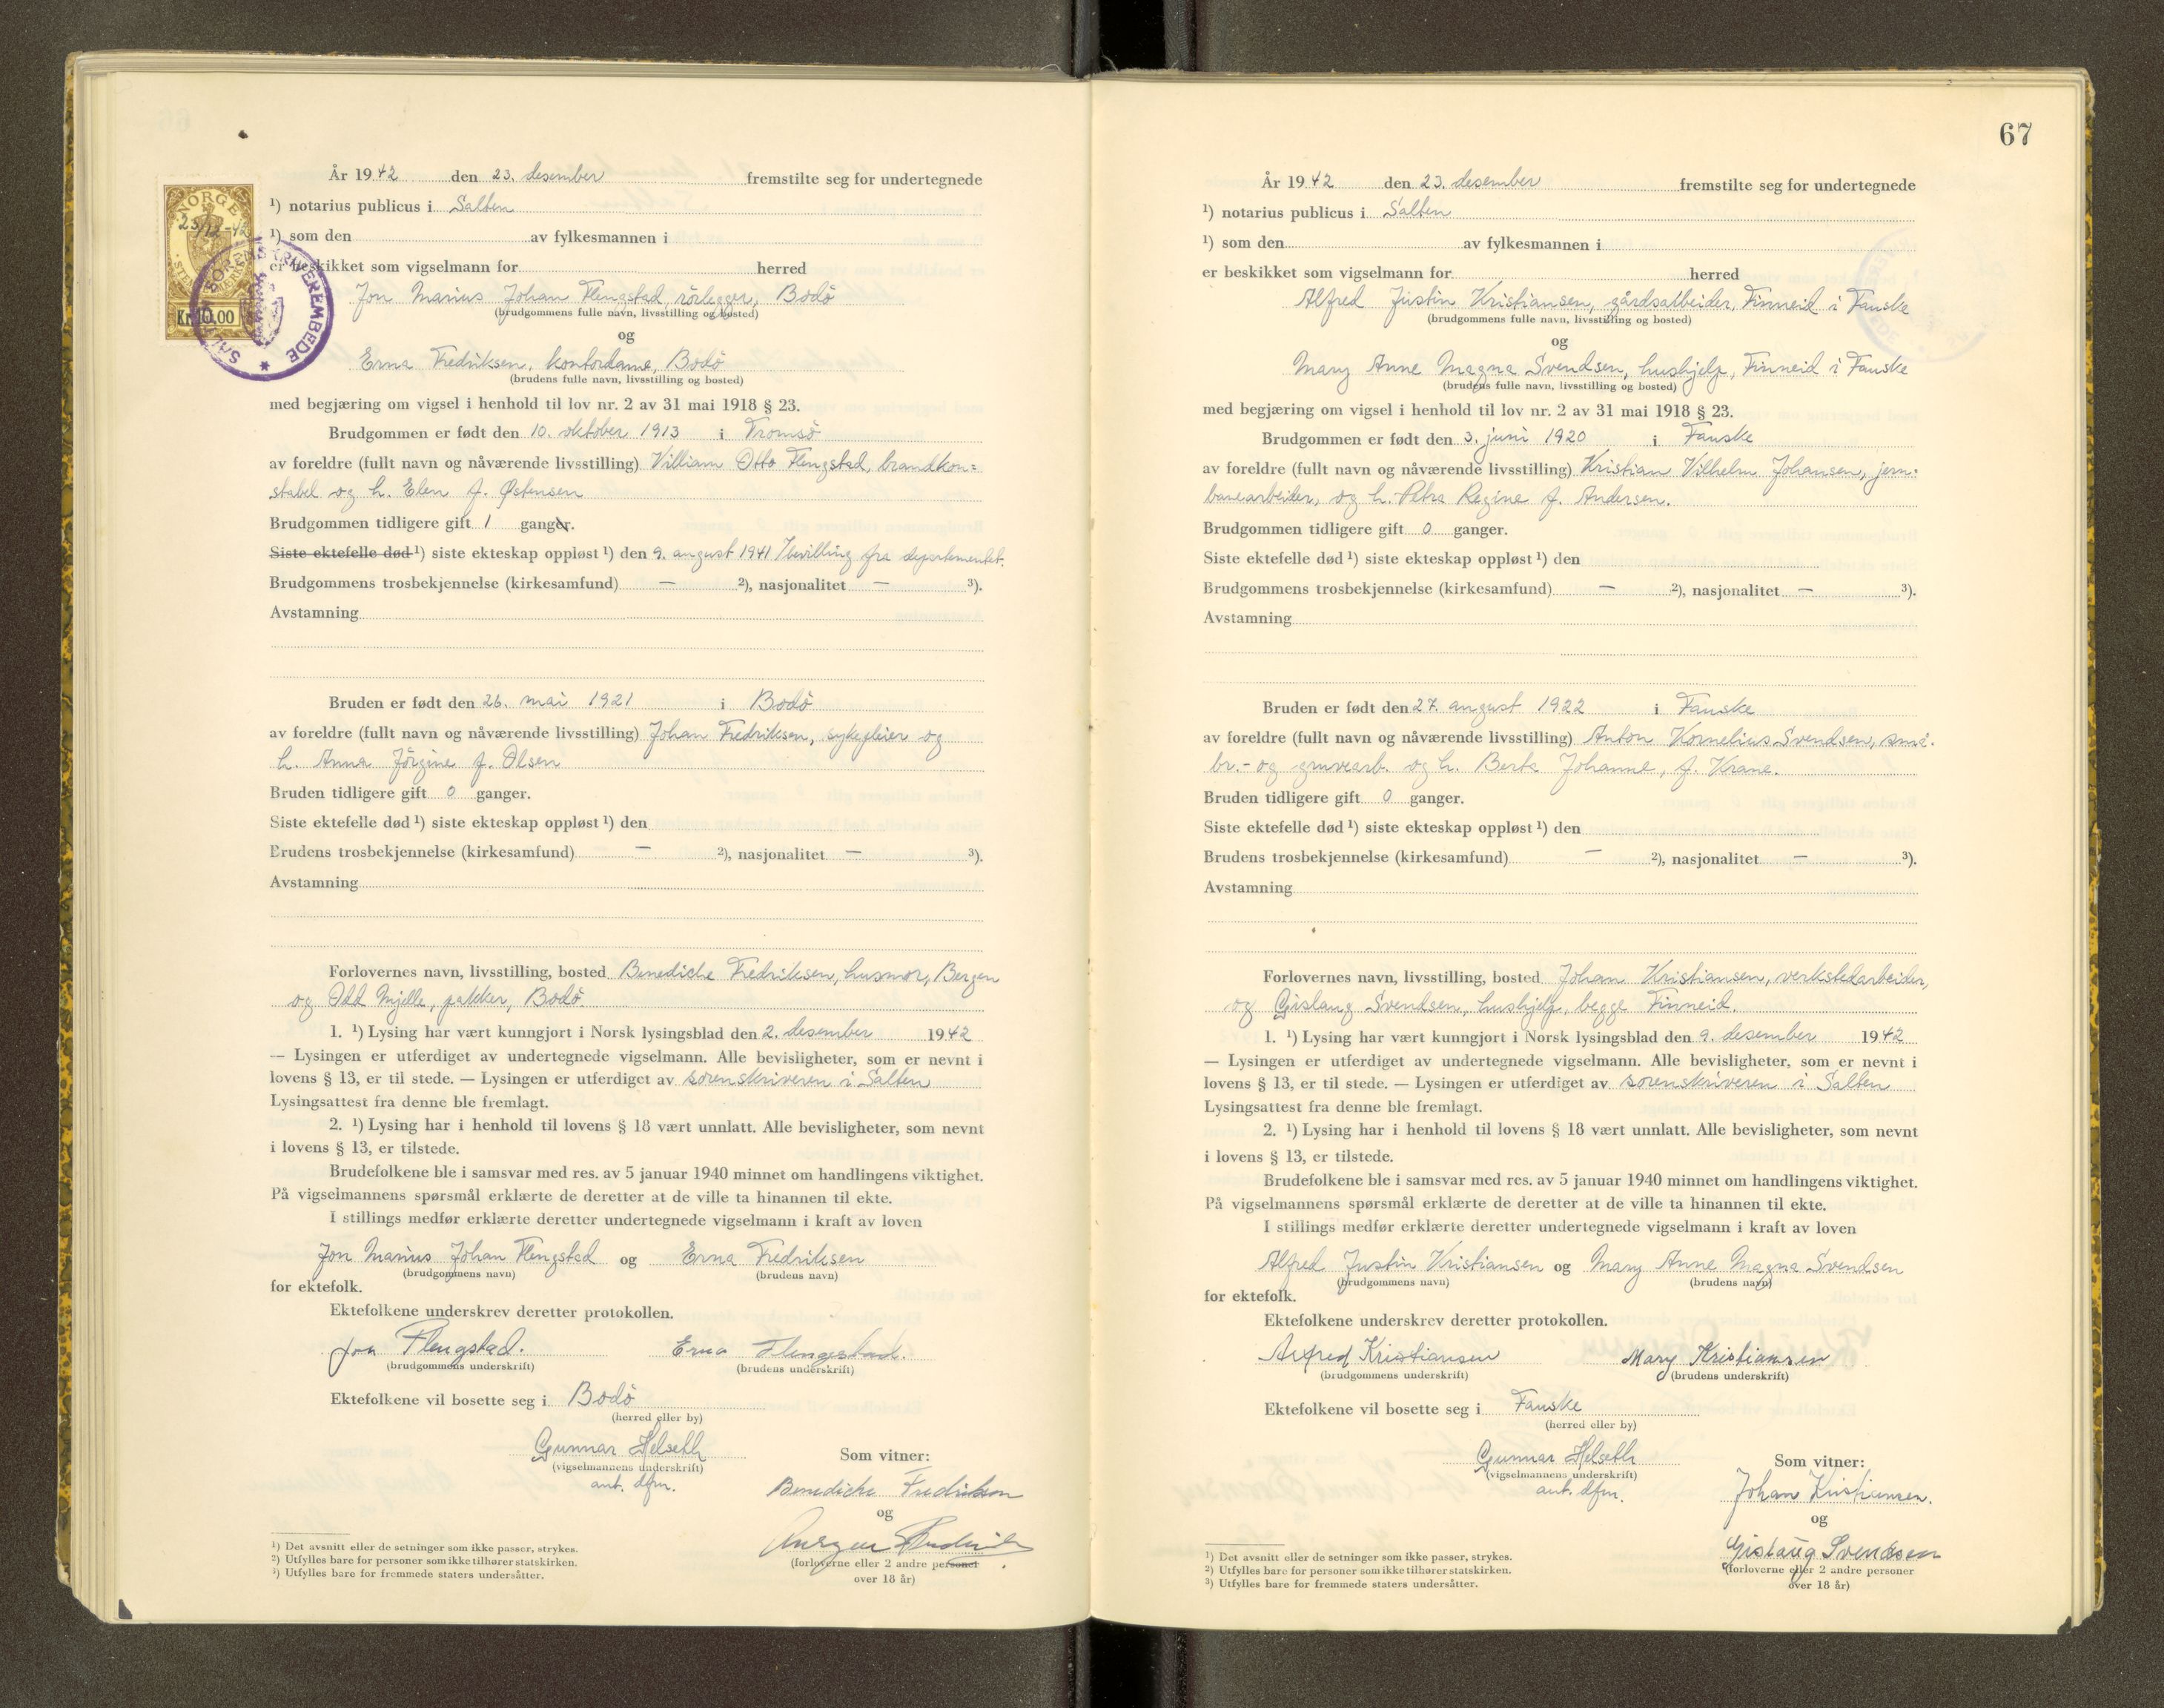 År 1942 den 23. desember fremstilte seg for undertegnede
¹) notarius publicus i Salten
¹) som den av fylkesmannen i
er beskikket som vigselmann for herred
NORGE
23/12-42
Kr. 10.00
SALTEN SORENSKRIVEREMBEDE
Jon Marius Johan Flengstad, rörlegger, Bodö
(brudgommens fulle navn, livsstilling og bosted)
og
Erna Fredriksen, kontordame, Bodö
(brudens fulle navn, livsstilling og bosted)
med begjæring om vigsel i henhold til lov nr. 2 av 31 mai 1918 § 23.
Brudgommen er født den 10. oktober 1913 i Tromsö
av foreldre (fullt navn og nåværende livsstilling) Villiam Otto Flengstad, brandkon=
stabel og h. Elen f. Østensen
Brudgommen tidligere gift 1 ganger.
Siste ektefelle død ¹) siste ekteskap oppløst ¹) den 9. august 1941 / bevilling fra departementet.
Brudgommens trosbekjennelse (kirkesamfund) — ²), nasjonalitet — ³).
Avstamning
Bruden er født den 26. mai 1921 i Bodö
av foreldre (fullt navn og nåværende livsstilling) Johan Fredriksen, sykepleier og
h. Anna Jörgine f. Olsen
Bruden tidligere gift 0 ganger.
Siste ektefelle død ¹) siste ekteskap oppløst ¹) den
Brudens trosbekjennelse (kirkesamfund) — ²), nasjonalitet — ³).
Avstamning
Forlovernes navn, livsstilling, bosted Benedicte Fredriksen, husmor, Bergen
og Odd Mjelle, pakker, Bodö
1. ¹) Lysing har vært kunngjort i Norsk lysingsblad den 2. desember 1942
— Lysingen er utferdiget av undertegnede vigselmann. Alle bevisligheter, som er nevnt i
lovens § 13, er til stede. — Lysingen er utferdiget av sorenskriveren i Salten
Lysingsattest fra denne ble fremlagt.
2. ¹) Lysing har i henhold til lovens § 18 vært unnlatt. Alle bevisligheter, som nevnt
i lovens § 13, er tilstede.
Brudefolkene ble i samsvar med res. av 5 januar 1940 minnet om handlingens viktighet.
På vigselmannens spørsmål erklærte de deretter at de ville ta hinannen til ekte.
I stillings medfør erklærte deretter undertegnede vigselmann i kraft av loven
Jon Marius Johan Flengstad og Erna Fredriksen
(brudgommens navn) (brudens navn)
for ektefolk.
Ektefolkene underskrev deretter protokollen.
Jon Flengstad. Erna Flengstad.
(brudgommens underskrift) (brudens underskrift)
Ektefolkene vil bosette seg i Bodö
(herred eller by)
Gunnar Helseth
(vigselmannens underskrift)
aut. dfm.
Som vitner:
Benedicte Fredriksen
og
(forloverne eller 2 andre personer
over 18 år)
¹) Det avsnitt eller de setninger som ikke passer, strykes.
²) Utfylles bare for personer som ikke tilhører statskirken.
³) Utfylles bare for fremmede staters undersåtter.
67
År 1942 den 23. desember fremstilte seg for undertegnede
¹) notarius publicus i Salten
¹) som den av fylkesmannen i
er beskikket som vigselmann for herred
Alfred Justin Kristiansen, gårdsarbeider, Finneid i Fauske
(brudgommens fulle navn, livsstilling og bosted)
og
Mary Anne Magna Svendsen, hushjelp, Finneid i Fauske
(brudens fulle navn, livsstilling og bosted)
med begjæring om vigsel i henhold til lov nr. 2 av 31 mai 1918 § 23.
Brudgommen er født den 3. juni 1920 i Fauske
av foreldre (fullt navn og nåværende livsstilling) Kristian Vilhelm Johansen, jern-
banearbeider, og h. Petra Regine f. Andersen.
Brudgommen tidligere gift 0 ganger.
Siste ektefelle død ¹) siste ekteskap oppløst ¹) den
Brudgommens trosbekjennelse (kirkesamfund) — ²), nasjonalitet — ³).
Avstamning
Bruden er født den 27. august 1922 i Fauske
av foreldre (fullt navn og nåværende livsstilling) Anton Kornelius Svendsen, små-
br.- og gruvearb. og h. Berta Johanne, f. Krane.
Bruden tidligere gift 0 ganger.
Siste ektefelle død ¹) siste ekteskap oppløst ¹) den
Brudens trosbekjennelse (kirkesamfund) — ²), nasjonalitet — ³).
Avstamning
Forlovernes navn, livsstilling, bosted Johan Kristiansen, verkstedarbeider,
og Gislaug Svendsen, hushjelp, begge Finneid.
1. ¹) Lysing har vært kunngjort i Norsk lysingsblad den 9. desember 1942
— Lysingen er utferdiget av undertegnede vigselmann. Alle bevisligheter, som er nevnt i
lovens § 13, er til stede. — Lysingen er utferdiget av sorenskriveren i Salten
Lysingsattest fra denne ble fremlagt.
2. ¹) Lysing har i henhold til lovens § 18 vært unnlatt. Alle bevisligheter, som nevnt
i lovens § 13, er tilstede.
Brudefolkene ble i samsvar med res. av 5 januar 1940 minnet om handlingens viktighet.
På vigselmannens spørsmål erklærte de deretter at de ville ta hinannen til ekte.
I stillings medfør erklærte deretter undertegnede vigselmann i kraft av loven
Alfred Justin Kristiansen og Mary Anne Magna Svendsen
(brudgommens navn) (brudens navn)
for ektefolk.
Ektefolkene underskrev deretter protokollen.
Alfred Kristiansen Mary Kristiansen
(brudgommens underskrift) (brudens underskrift)
Ektefolkene vil bosette seg i Fauske
(herred eller by)
Gunnar Helseth
(vigselmannens underskrift)
aut. dfm.
Som vitner:
Johan Kristiansen.
og
Gislaug Svendsen
(forloverne eller 2 andre personer
over 18 år)
¹) Det avsnitt eller de setninger som ikke passer, strykes.
²) Utfylles bare for personer som ikke tilhører statskirken.
³) Utfylles bare for fremmede staters undersåtter.